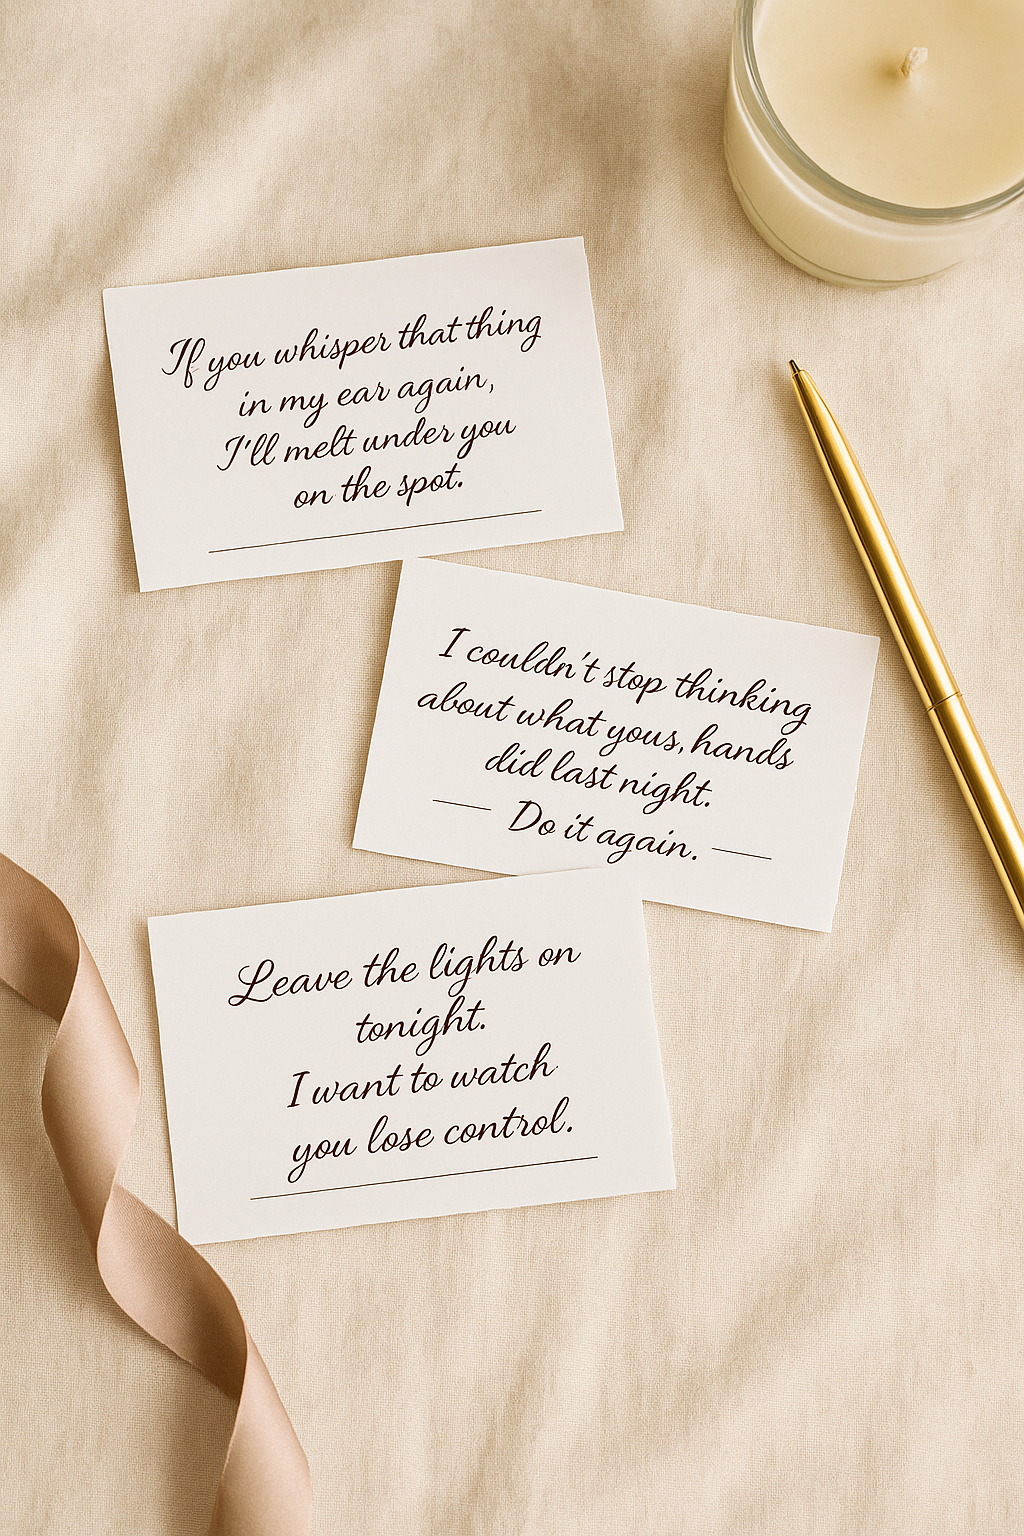 If you whisper that thing
in my ear again,
I'll melt under you
on the spot.
I couldn't stop thinking
about what yous, hands
did last night.
Do it again.
Leave the lights on
tonight.
I want to watch
you lose control.